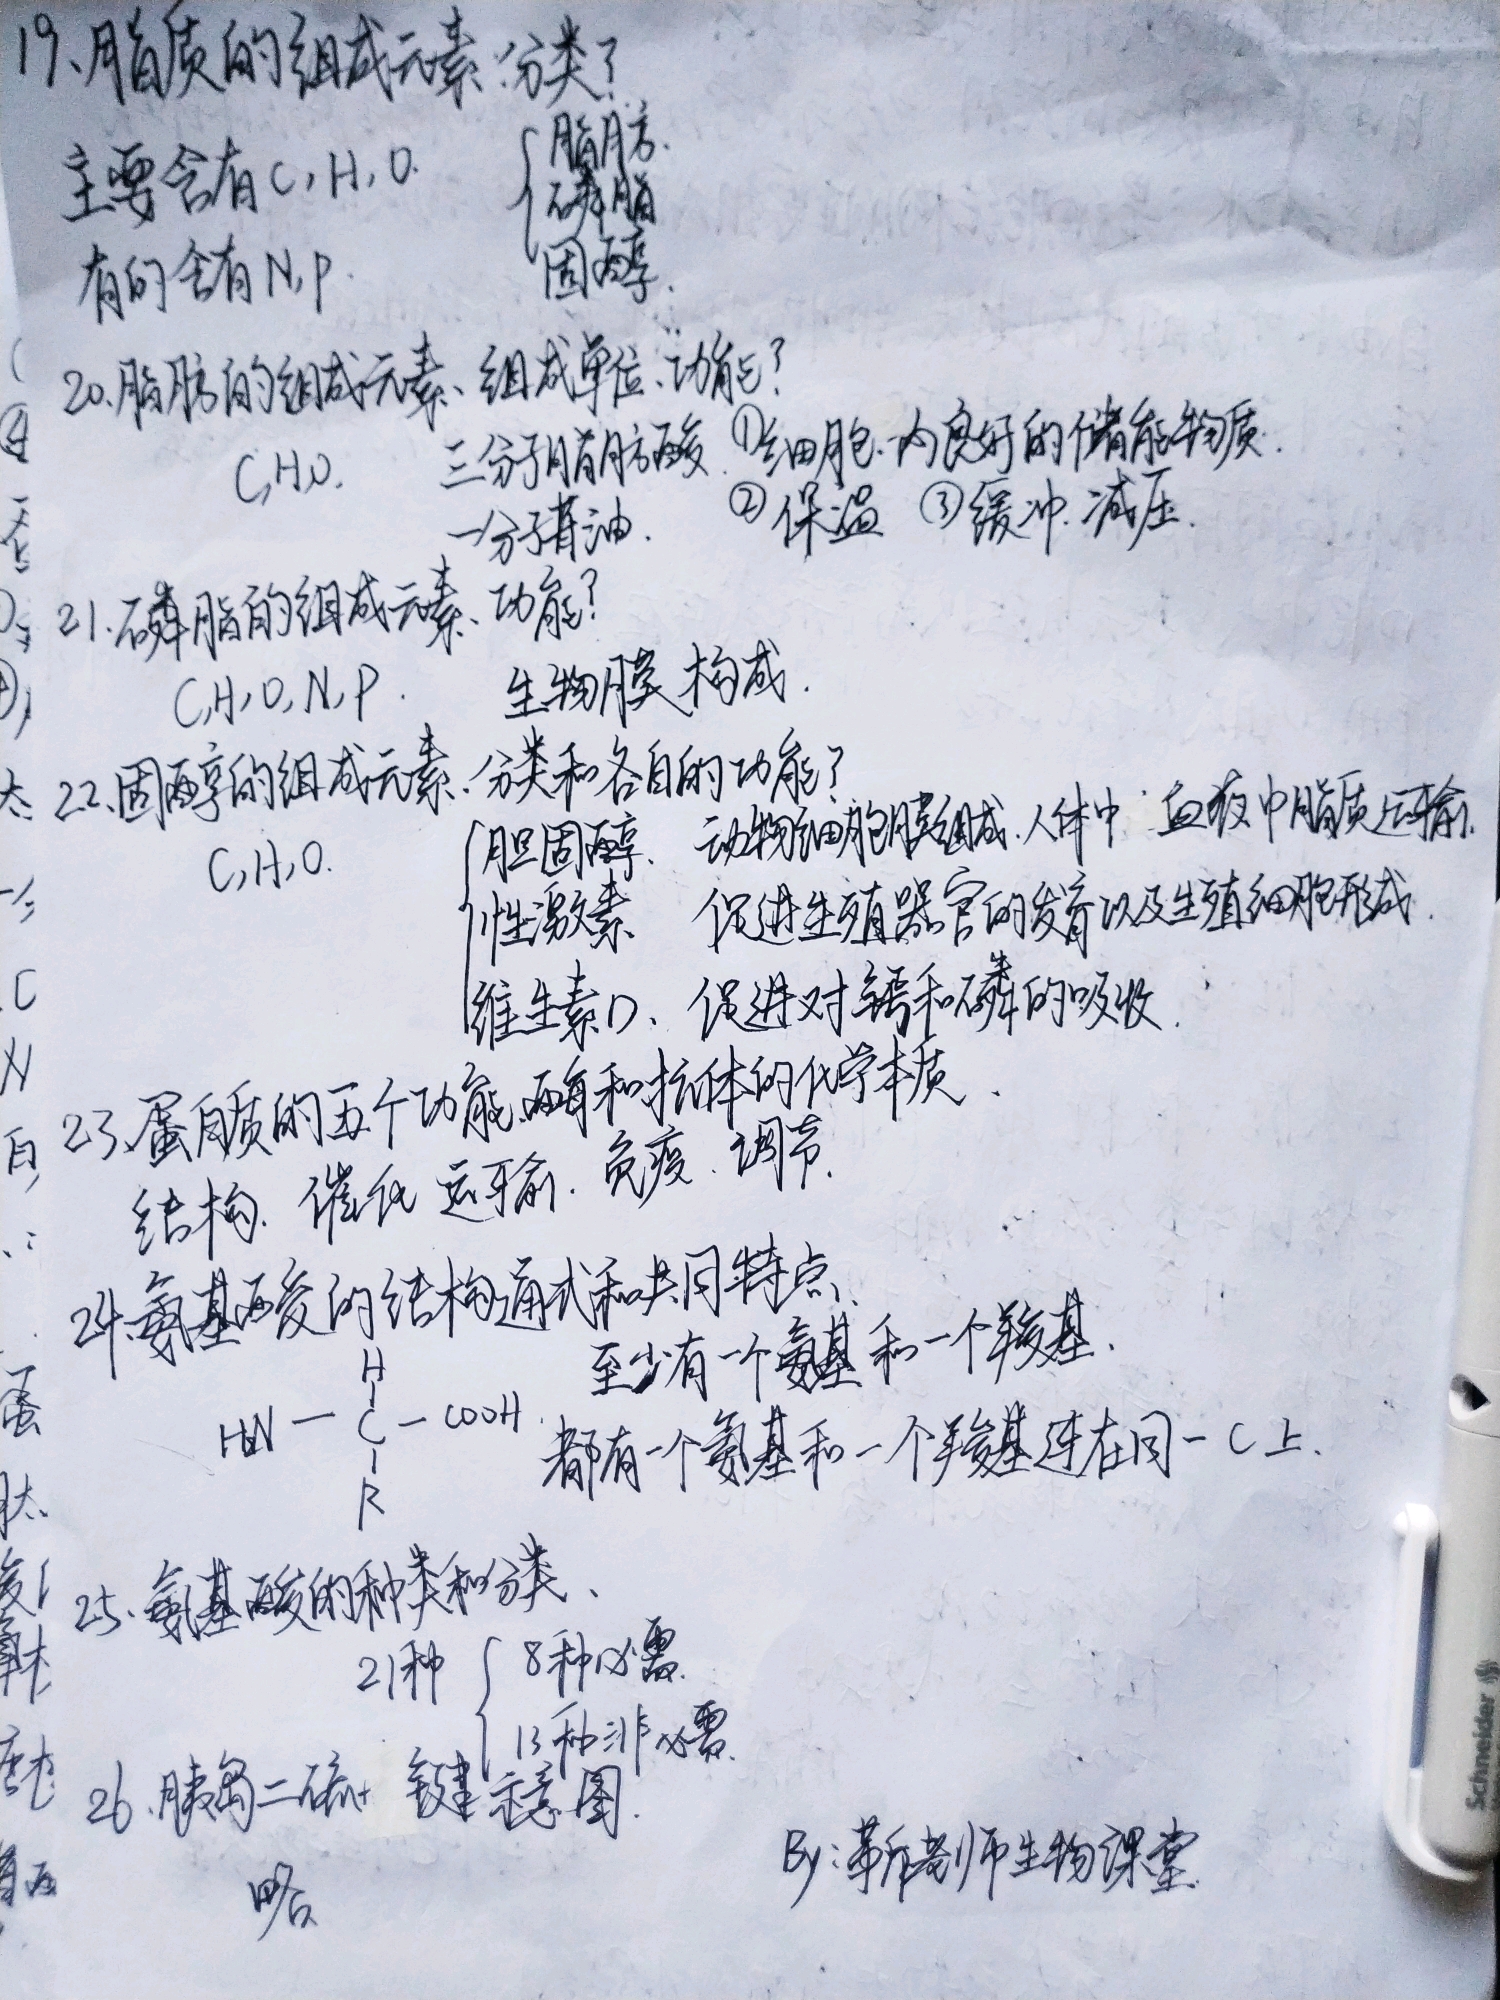 19、脂质的组成元素、分类？
主要含有C，H，O.
有的含有N，P.
脂肪.
磷脂
固醇.
20、脂肪的组成元素、组成单位、功能？
C，H，O.
三分子脂肪酸
一分子甘油.
①细胞内良好的储能物质.
②保温 ③缓冲.减压.
21.磷脂的组成元素、功能？
C，H，O，N，P.
生物膜构成.
22、固醇的组成元素、分类和各自的功能？
C，H，O.
胆固醇. 动物细胞膜组成.人体中 血液中脂质运输.
性激素 促进生殖器官的发育以及生殖细胞形成.
维生素D、促进对钙和磷的吸收.
23、蛋白质的五个功能、酶和抗体的化学本质、
结构. 催化 运输. 免疫. 调节.
24、氨基酸的结构通式和共同特点、
至少有一个氨基和一个羧基.
H
H₂N－C－COOH.
R
都有一个氨基和一个羧基连在同一C上.
25、氨基酸的种类和分类、
21种
8种必需.
13种非必需.
26、胰岛二硫 键示意图.
略
By：靳老师生物课堂
Schneider